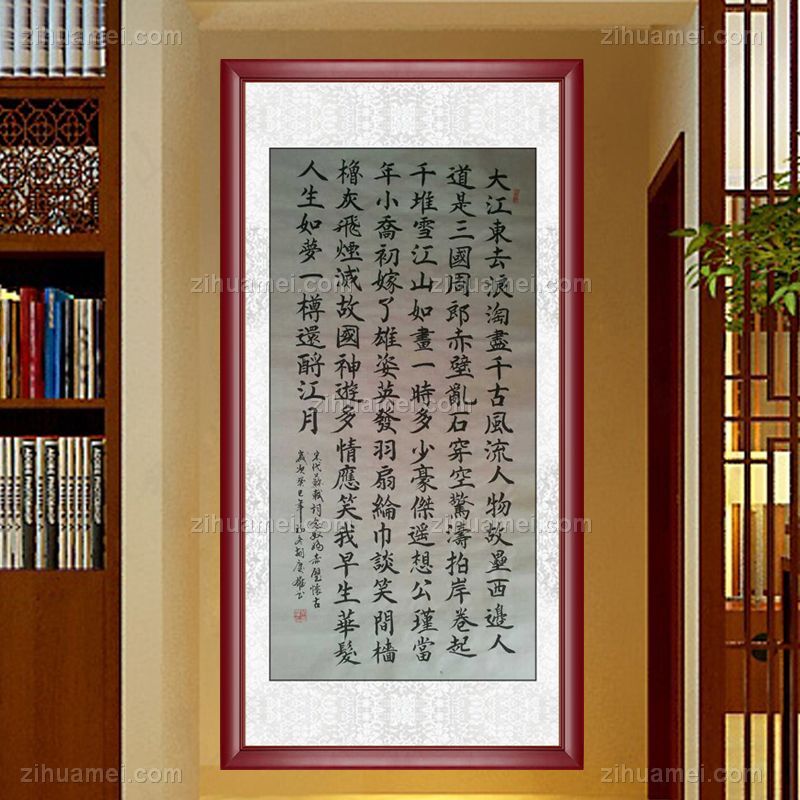 大江東去浪淘盡千古風流人物故壘西邊人
道是三國周郎赤壁亂石穿空驚濤拍岸卷起
千堆雪江山如畫一時多少豪傑遥想公瑾當
年小喬初嫁了雄姿英發羽扇綸巾談笑間檣
櫓灰飛煙滅故國神遊多情應笑我早生華髮
人生如夢一樽還酹江月
宋代蘇軾詞念奴嬌赤壁懷古
歲次癸巳年
zihuamei.com
zihuamei.com
zihuamei.com
zihuamei.com
zihuamei.com
zihuamei.com
zihuamei.com
zihuamei.com
zihuamei.com
zihuamei.com